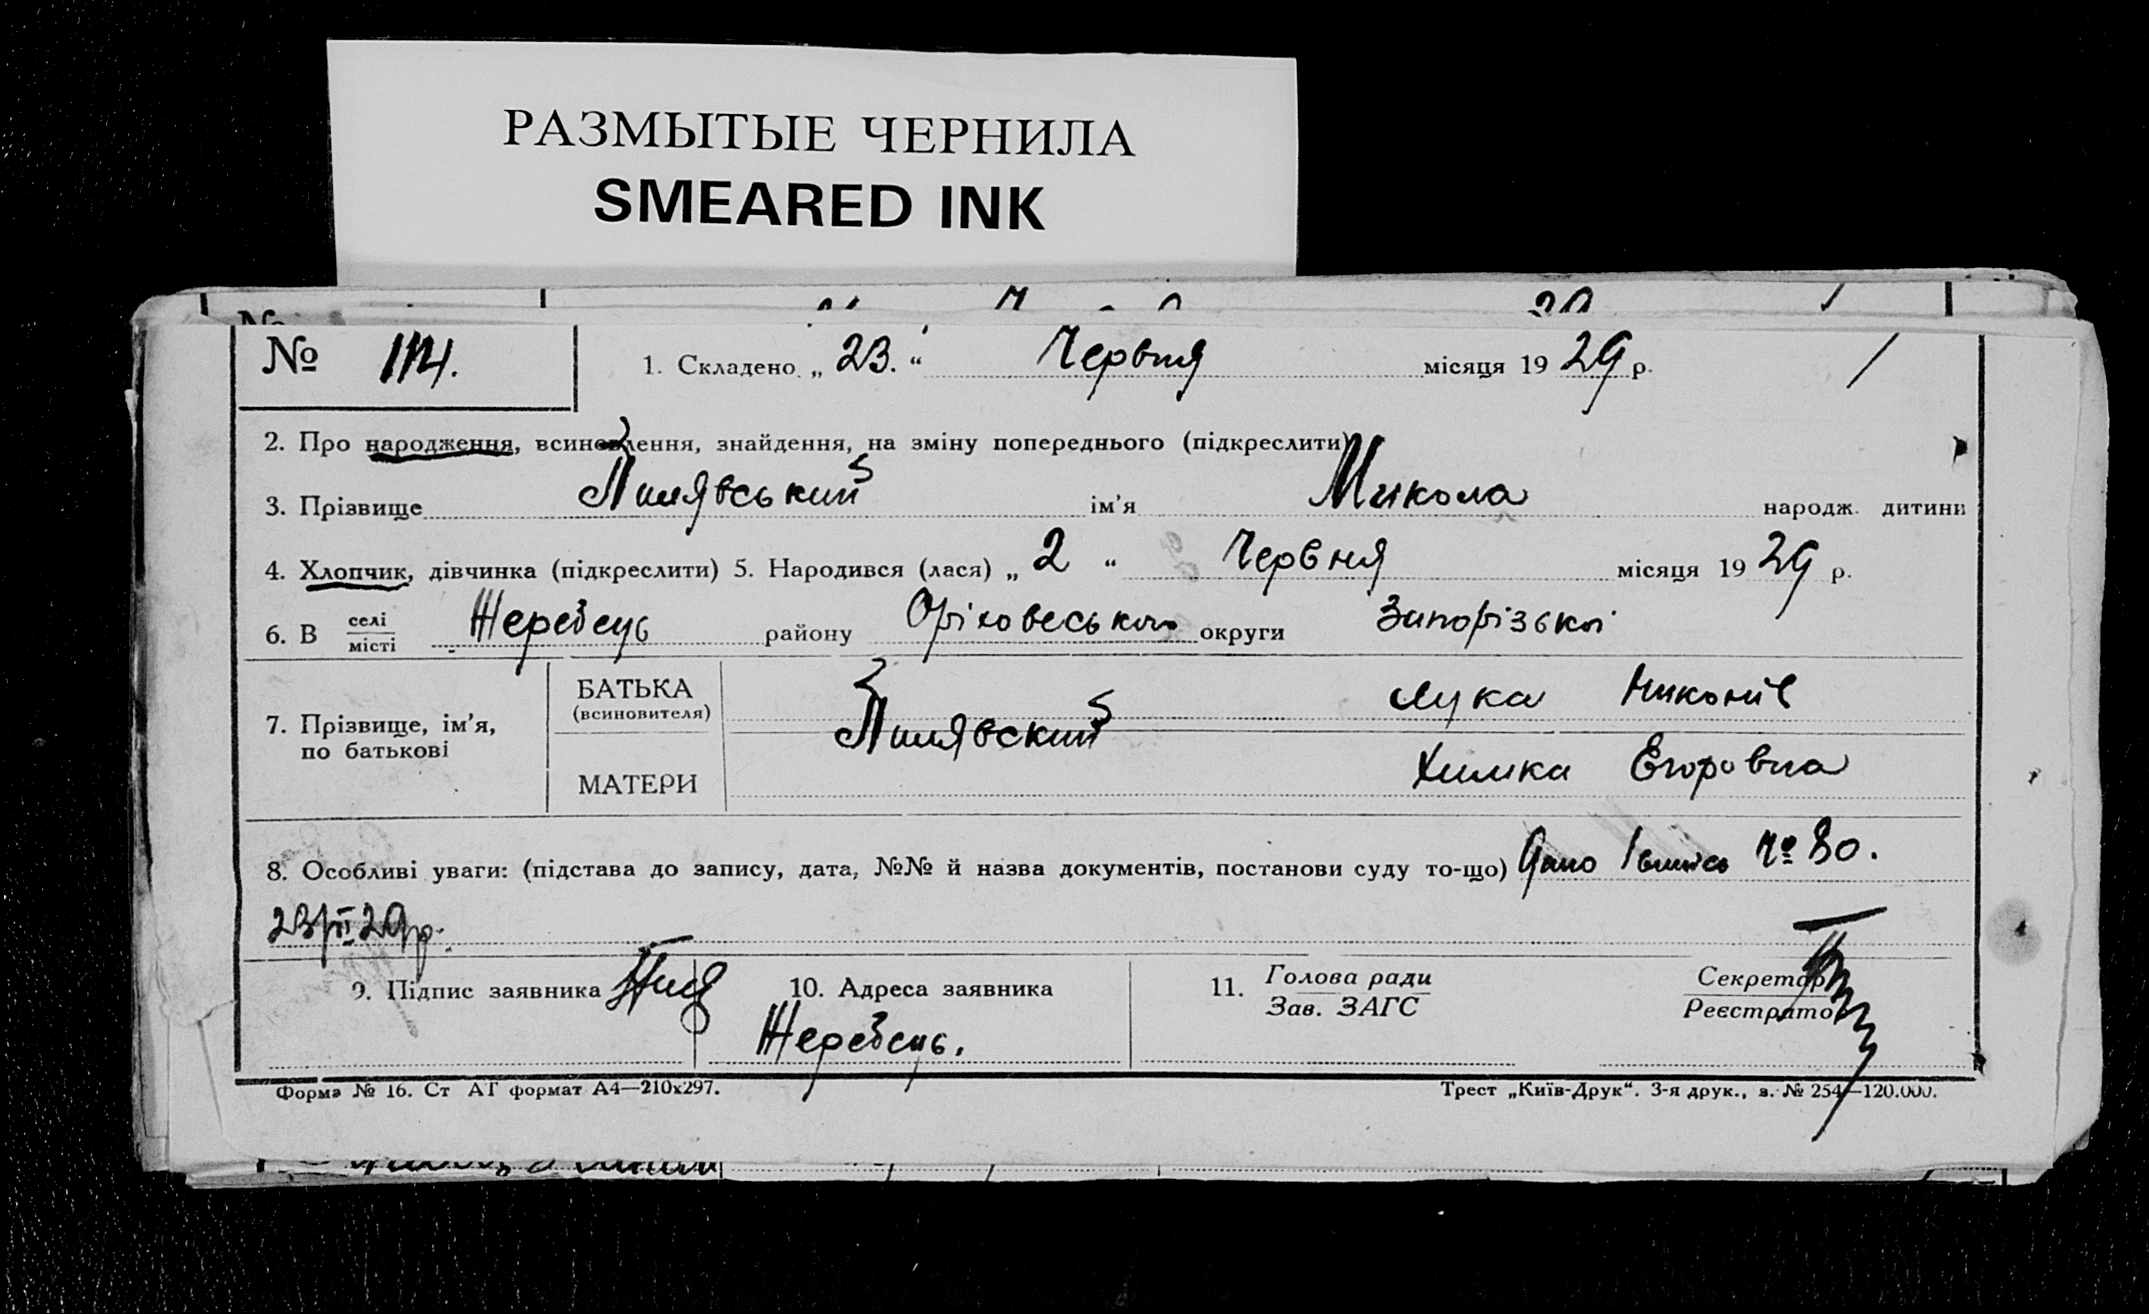 РАЗМЫТЫЕ ЧЕРНИЛА
SMEARED INK
№ 114. 1. Складено „ 23. “ Червня місяця 19 29 р.
2. Про народження, всиновлення, знайдення, на зміну попереднього (підкреслити)
3. Прізвище Пилявський ім'я Микола народж. дитини
4. Хлопчик, дівчинка (підкреслити) 5. Народився (лася) „ 2 “ Червня місяця 19 29 р.
6. В селі місті Жеребець району Оріховеського округи Запорізької
7. Прізвище, ім'я, по батькові
БАТЬКА (всиновителя) Лука Никонів
Пилявский
МАТЕРИ Химка Егоровна
8. Особливі уваги: (підстава до запису, дата, №№ й назва документів, постанови суду то-що) Дано № 80.
23/VI 29р.
9. Підпис заявника 10. Адреса заявника 11. Голова ради Секретар
Зав. ЗАГС Реєстратор
Жеребець.
Форма № 16. Ст АТ формат А4—210x297. Трест „Київ-Друк“. 3-я друк., з. № 254—120.000.